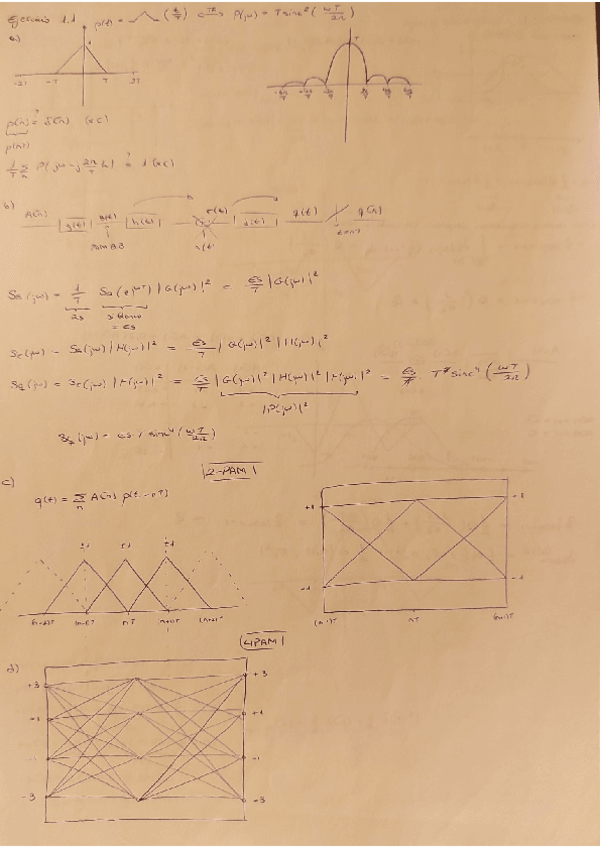 Ejercicio 1.1 p(t) = Λ(t/T) ⟷ P(jω) = T sinc²(ωT/2π)
a)
-2T -T T 2T
p[n] = δ[n] (sí)
p(nT)
1/T Σ P(jω - j 2π/T k) = 1 (sí)
b)
A[n] g(t) s(t) h(t) r(t) q(t) q[n]
n(t)
Ss(jω) = 1/T Sa(e^jωT) |G(jω)|² = Es/T |G(jω)|²
= Es
Sr(jω) = Ss(jω) |H(jω)|² = Es/T |G(jω)|² |H(jω)|²
Sq(jω) = Sr(jω) |F(jω)|² = Es/T |G(jω)|² |H(jω)|² |F(jω)|² = Es/T · T² sinc⁴(ωT/2π)
|P(jω)|²
Sq(jω) = Es T sinc⁴(ωT/2π)
2-PAM
c)
q(t) = Σ A[n] p(t - nT)
n
±1 ±1 ±1
(n-2)T (n-1)T nT (n+1)T (n+2)T
+1 +1
-1 -1
(n-1)T nT (n+1)T
4PAM
d)
+3 +3
+1 +1
-1 -1
-3 -3